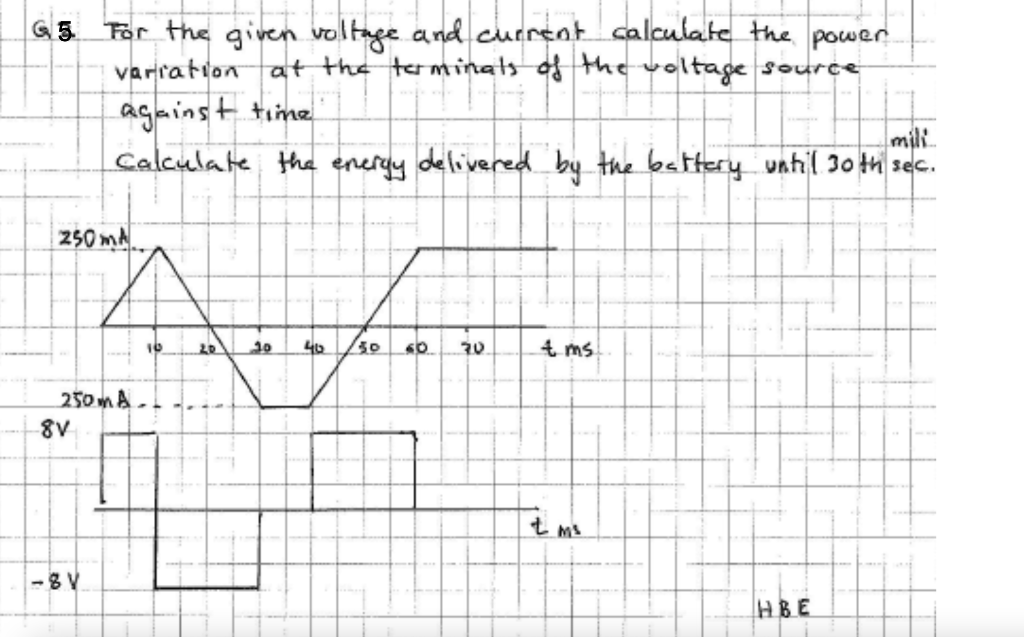 Q5. For the given voltage and current calculate the power
variation at the terminals of the voltage source
against time
mili
Calculate the energy delivered by the battery until 30th sec.
250mA
10 20 30 40 50 60 70 t ms
250mA
8V
t ms
-8V
HBE